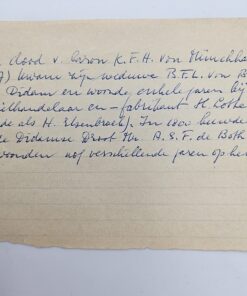 dood v. baron K.F.H. von Münchha
7) kwam zijn weduwe B.F.L. von B
Didam en woonde enkele jaren bij
elhandelaar en - fabrikant H. Lothe
de als H. Elsenbroek). In 1800 huwde
de Didamse Drost Mr. A.S.F. de Both
woonden nog verschillende jaren op he